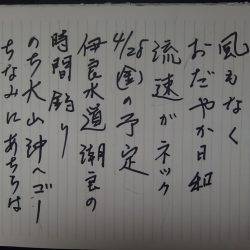 風もなく
おだやか日和
流速がネック
4/25(金)の予定
伊良水道潮目の
時間釣り
のち大山沖へゴー
ちなみにあちらは